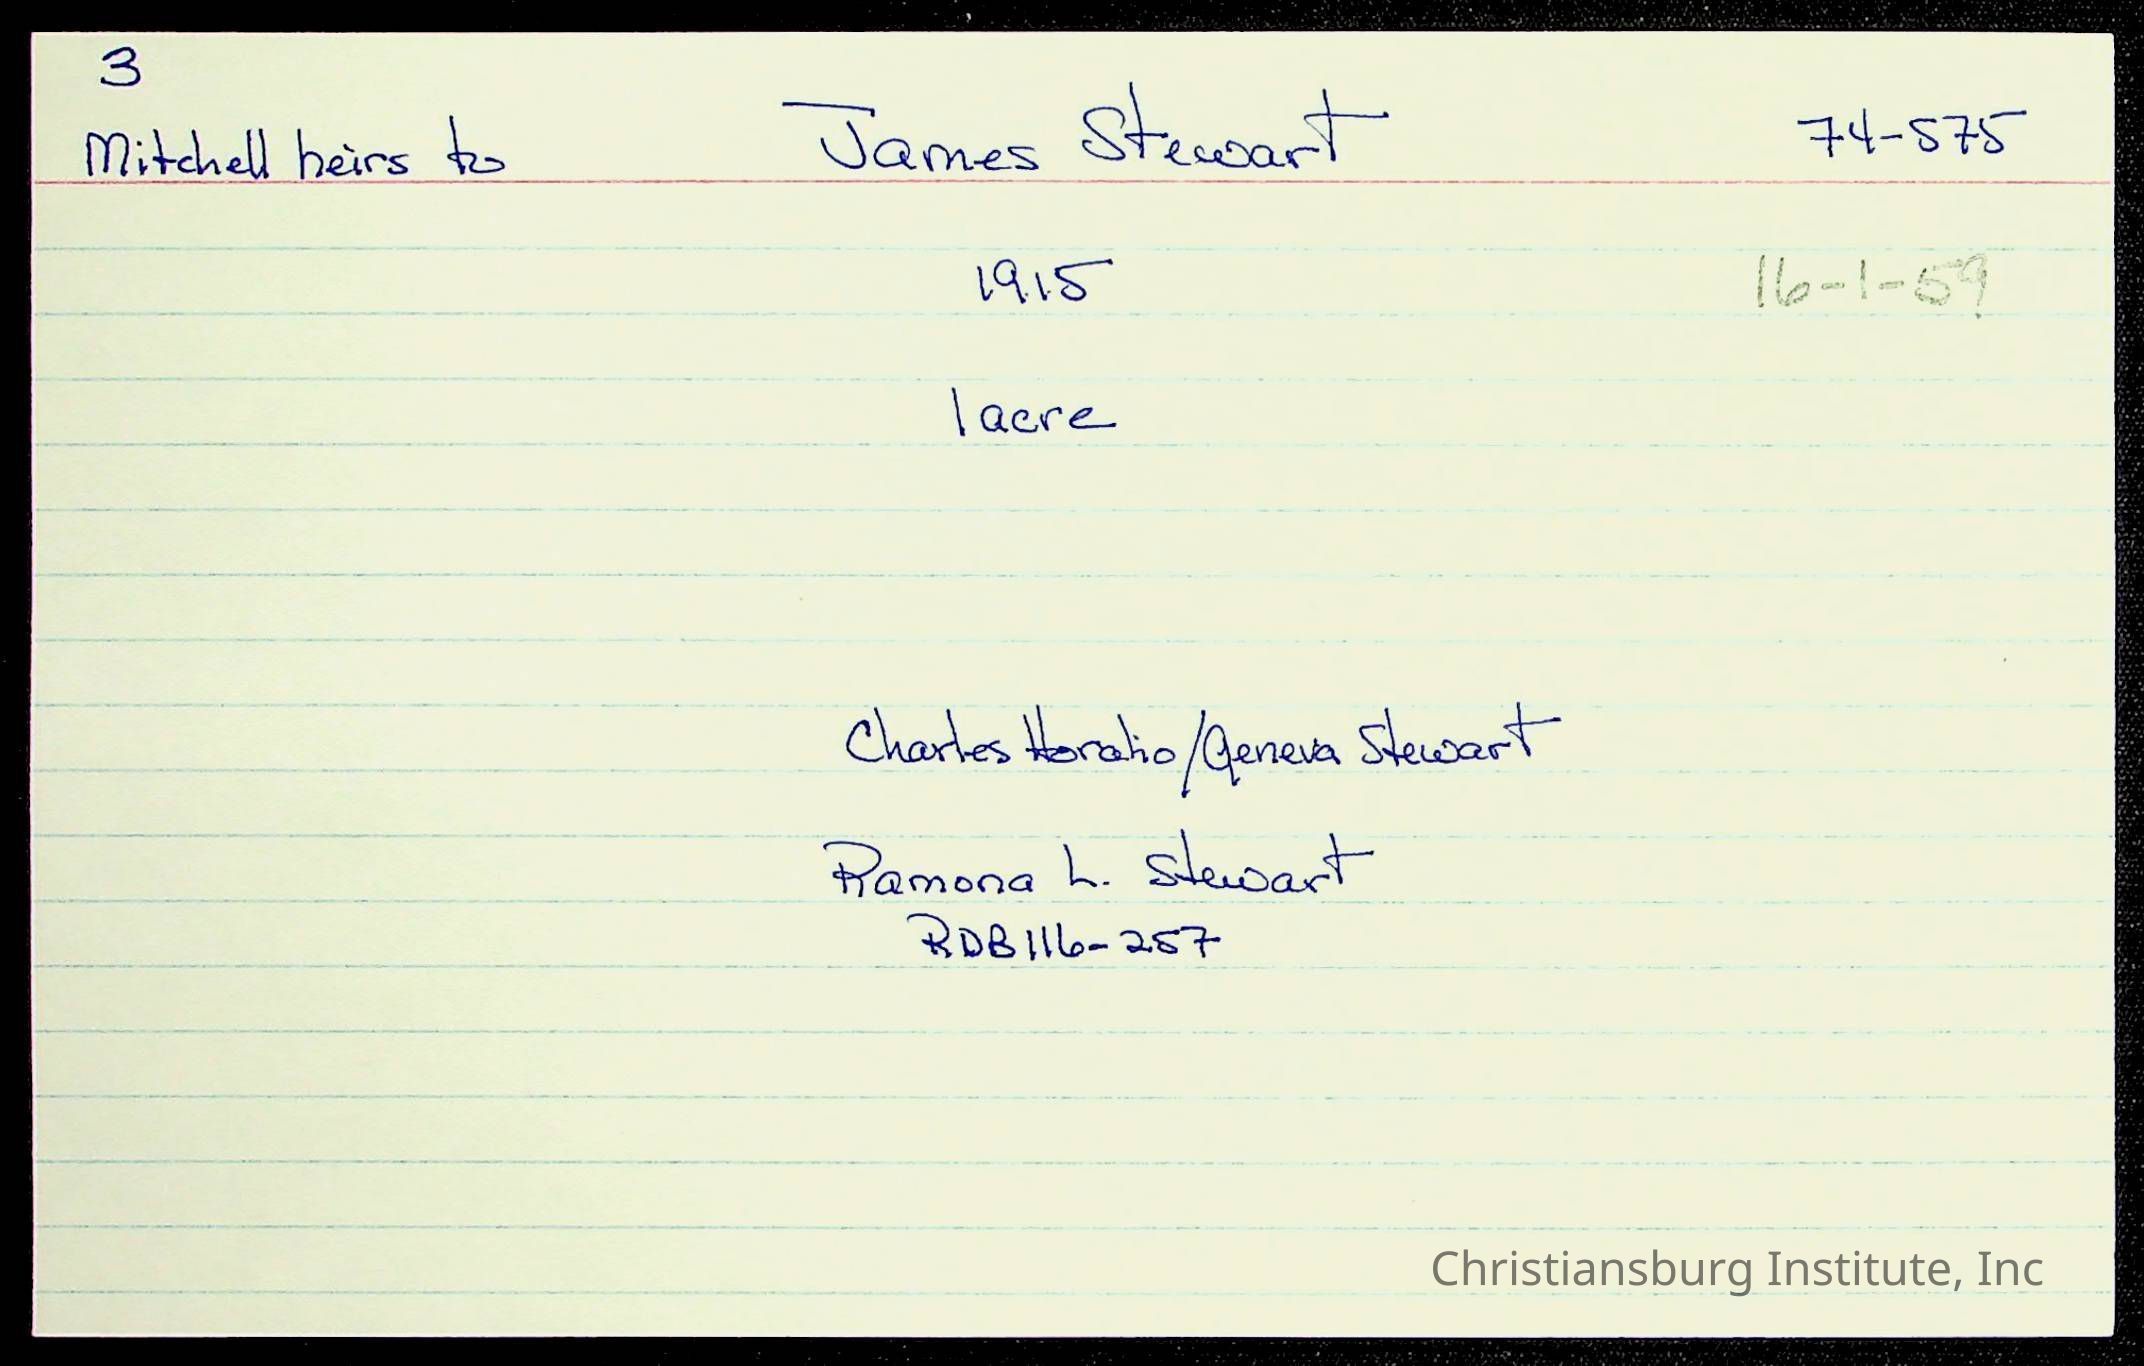 3
Mitchell heirs to James Stewart 74-575
1915 16-1-59
1 acre
Charles Horatio/Geneva Stewart
Ramona L. Stewart
RDB 116-257
Christiansburg Institute, Inc